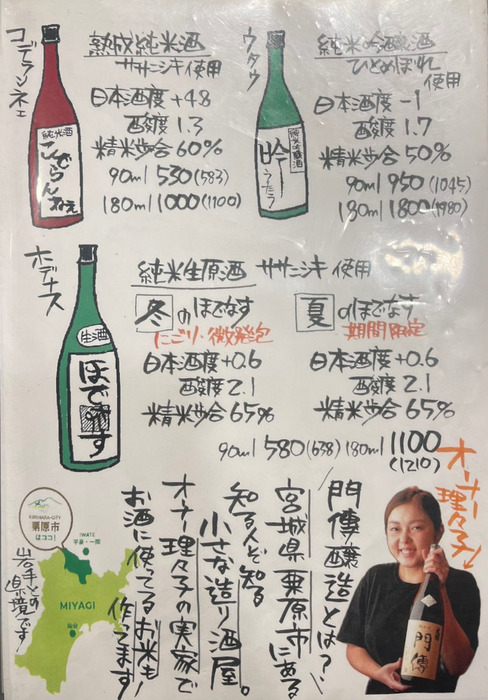 コデランネェ
熟成純米酒
ササニシキ使用
日本酒度+4.8
酸度1.3
精米歩合60%
90ml 530(583)
180ml 1000(1100)
純米酒
こんでらんねぇ
ウタウ
純米吟醸酒
ひとめぼれ
使用
日本酒度-1
酸度1.7
精米歩合50%
90ml 950(1045)
180ml 1800(1980)
純米吟醸酒
吟
うたう
ホデナス
純米生原酒 ササニシキ 使用
冬のほでなす
にごり・微発泡
日本酒度+0.6
酸度2.1
精米歩合65%
夏のほでなす
期間限定
日本酒度+0.6
酸度2.1
精米歩合65%
90ml 580(638) 180ml 1100
(1210)
生酒
ほでなす
オーナー
理々子
門傳醸造とは?
宮城県栗原市にある
知る人ぞ知る
小さな造り酒屋。
オーナー理々子の実家で
お酒に使ってるお米も
作ってます
KURIHARA-CITY
栗原市
はココ!
IWATE
平泉・一関
MIYAGI
仙台
岩手との
県境です!
門傳